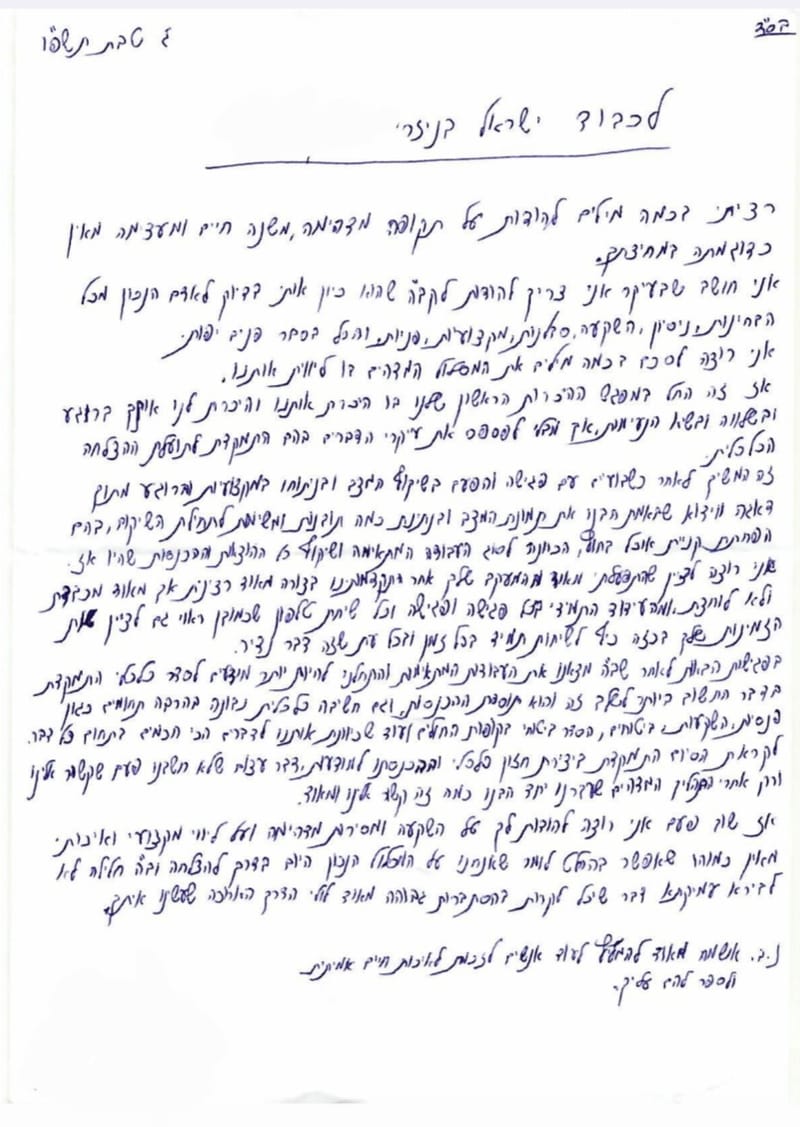 בס"ד
ג טבת תשפ"ו
לכבוד ישראל בניזרי
רציתי בכמה מילים להודות על תקופה מדהימה, משנה חיים ומעצימה מאין
כדוגמתה במחיצתך.
אני חושב שבעיקר אני צריך להודות לקב"ה שהוא כיון אותי בדיוק לאדם הנכון מכל
הבחינות, ניסיון, השקעה, סבלנות, מקצועיות, פניות, והכל בסבר פנים יפות.
אני רוצה לסכם בכמה מילים את המסלול המדהים בו ליווית אותנו.
אז זה החל במפגש ההיכרות הראשון שלנו בו היכרת אותנו והיכרת לנו אותך ברוגע
ובשלווה ובשיא הנעימות, אך מבלי לפספס את עיקרי הדברים בהם התמקדת לתועלת ההצלחה
הכלכלית.
זה המשיך לאחר כשבועיים עם פגישה והפעם בשיקוף המצב ובניתוחו במקצועיות וברוגע מתוך
דאגה ווידוא שבאמת הבנו את תמונת המצב ובנתינת כמה תובנות ומשימות לתחילת השיקום, בהם
הפחתת קניית אוכל בחוץ, הכוונה לסוג העבודה המתאימה ושיקוף כל ההוצאות וההכנסות שהיו אז.
אני רוצה לציין שהתפעלתי מאוד מהמעקב שלך אחר התקדמותינו בצורה מאוד רצינית אך מאוד מכבדת
ולא לוחצת, ומהעידוד התמידי בכל פגישה ופגישה וכל שיחת טלפון שכמובן ראוי גם לציין את
הזמינות שלך בכזה כיף לשיחות תמיד בכל זמן ובכל עת שזה דבר נדיר.
בפגישות הבאות לאחר שב"ה מצאנו את העבודות המתאימות והתחלנו להיות יותר מודעים לסדר כלכלי התמקדת
בדבר החשוב ביותר לשלב זה והוא תוספת ההכנסות, וגם חשיבה כלכלית נבונה בהרבה תחומים כגון
פנסיות, השקעות, ביטוחים, הסדר ביטוחי בקופות החולים ועוד שכיוונת אותנו לדברים הכי חכמים בתחום כל דבר.
לקראת הסיום התמקדת ביצירת חזון כלכלי ובהכנסתו למודעות, דבר עצום שלא חשבנו פעם שקשור אלינו
ורק אחרי התהליך המדהים שעברנו יחד הבנו כמה זה קשור אלינו ומאוד.
אז שוב פעם אני רוצה להודות לך על השקעה ומסירות מדהימה ועל ליווי מקצועי ואיכותי
מאין כמוהו שאפשר בהחלט לומר שאנחנו על המסלול הנכון היום בדרך להצלחה וב"ה חלילה לא
לבירא עמיקתא דבר שיכל לקרות בהסתברות גבוהה מאוד לולי הדרך הארוכה שעשינו איתך.
נ.ב. אשמח מאוד להמליץ לעוד אנשים לזכות לאיכות חיים אמיתית
ולספר להם עליך.